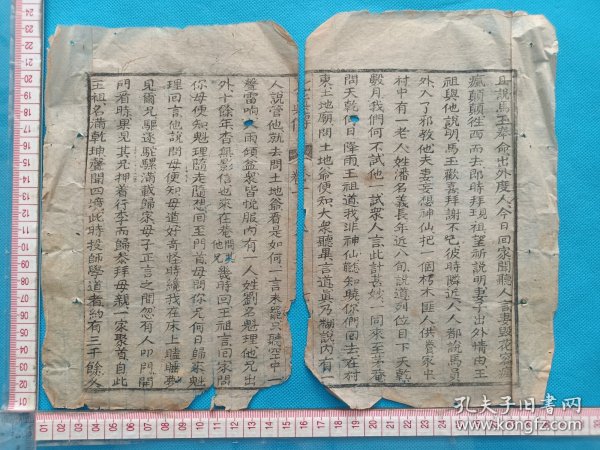 且說馬玉奉命出外度人今日回家聞聽人言妻毀花容瘋
瘋顛顛往西而去即時拜現祖望祈說明妻子出外情由王
祖與他說明馬玉歡喜拜謝不已彼時隣近人人都說馬員
外入了邪教他夫妻妄想神仙把一個朽木匪人供養家中
村中有一老人姓潘名義長年近八旬說道列位目下天乾
數月我們何不試他一試眾人言此計甚妙一同來至茅菴
問天乾何日降雨王祖道我非神仙能知曉你們回去在村
東土地廟問土地爺便知大眾聽畢言道真乃糊說內有一
人說管他就去問土地爺看是如何一言未罷只聽空中一
聲雷响大雨傾盆眾皆悅服內有一人姓劉名魁理他兄出
外十餘年杳無影信也來在菴問其他兄幾時回王祖言回家問
你母便知魁理隨走隨想回至門首母問你兄何日歸家魁
理回言他說問母便知母道好奇怪時纔我在床上瞌睡夢
見爾兄騾逐駝騾滿載歸家母子正言之間忽有人叩門開
門看時果見其兄押着行李而歸叅拜母親一家聚首自此
王祖名滿乾坤聲聞四境此時投師學道者約有三千餘人
卷一
孔夫子旧书网